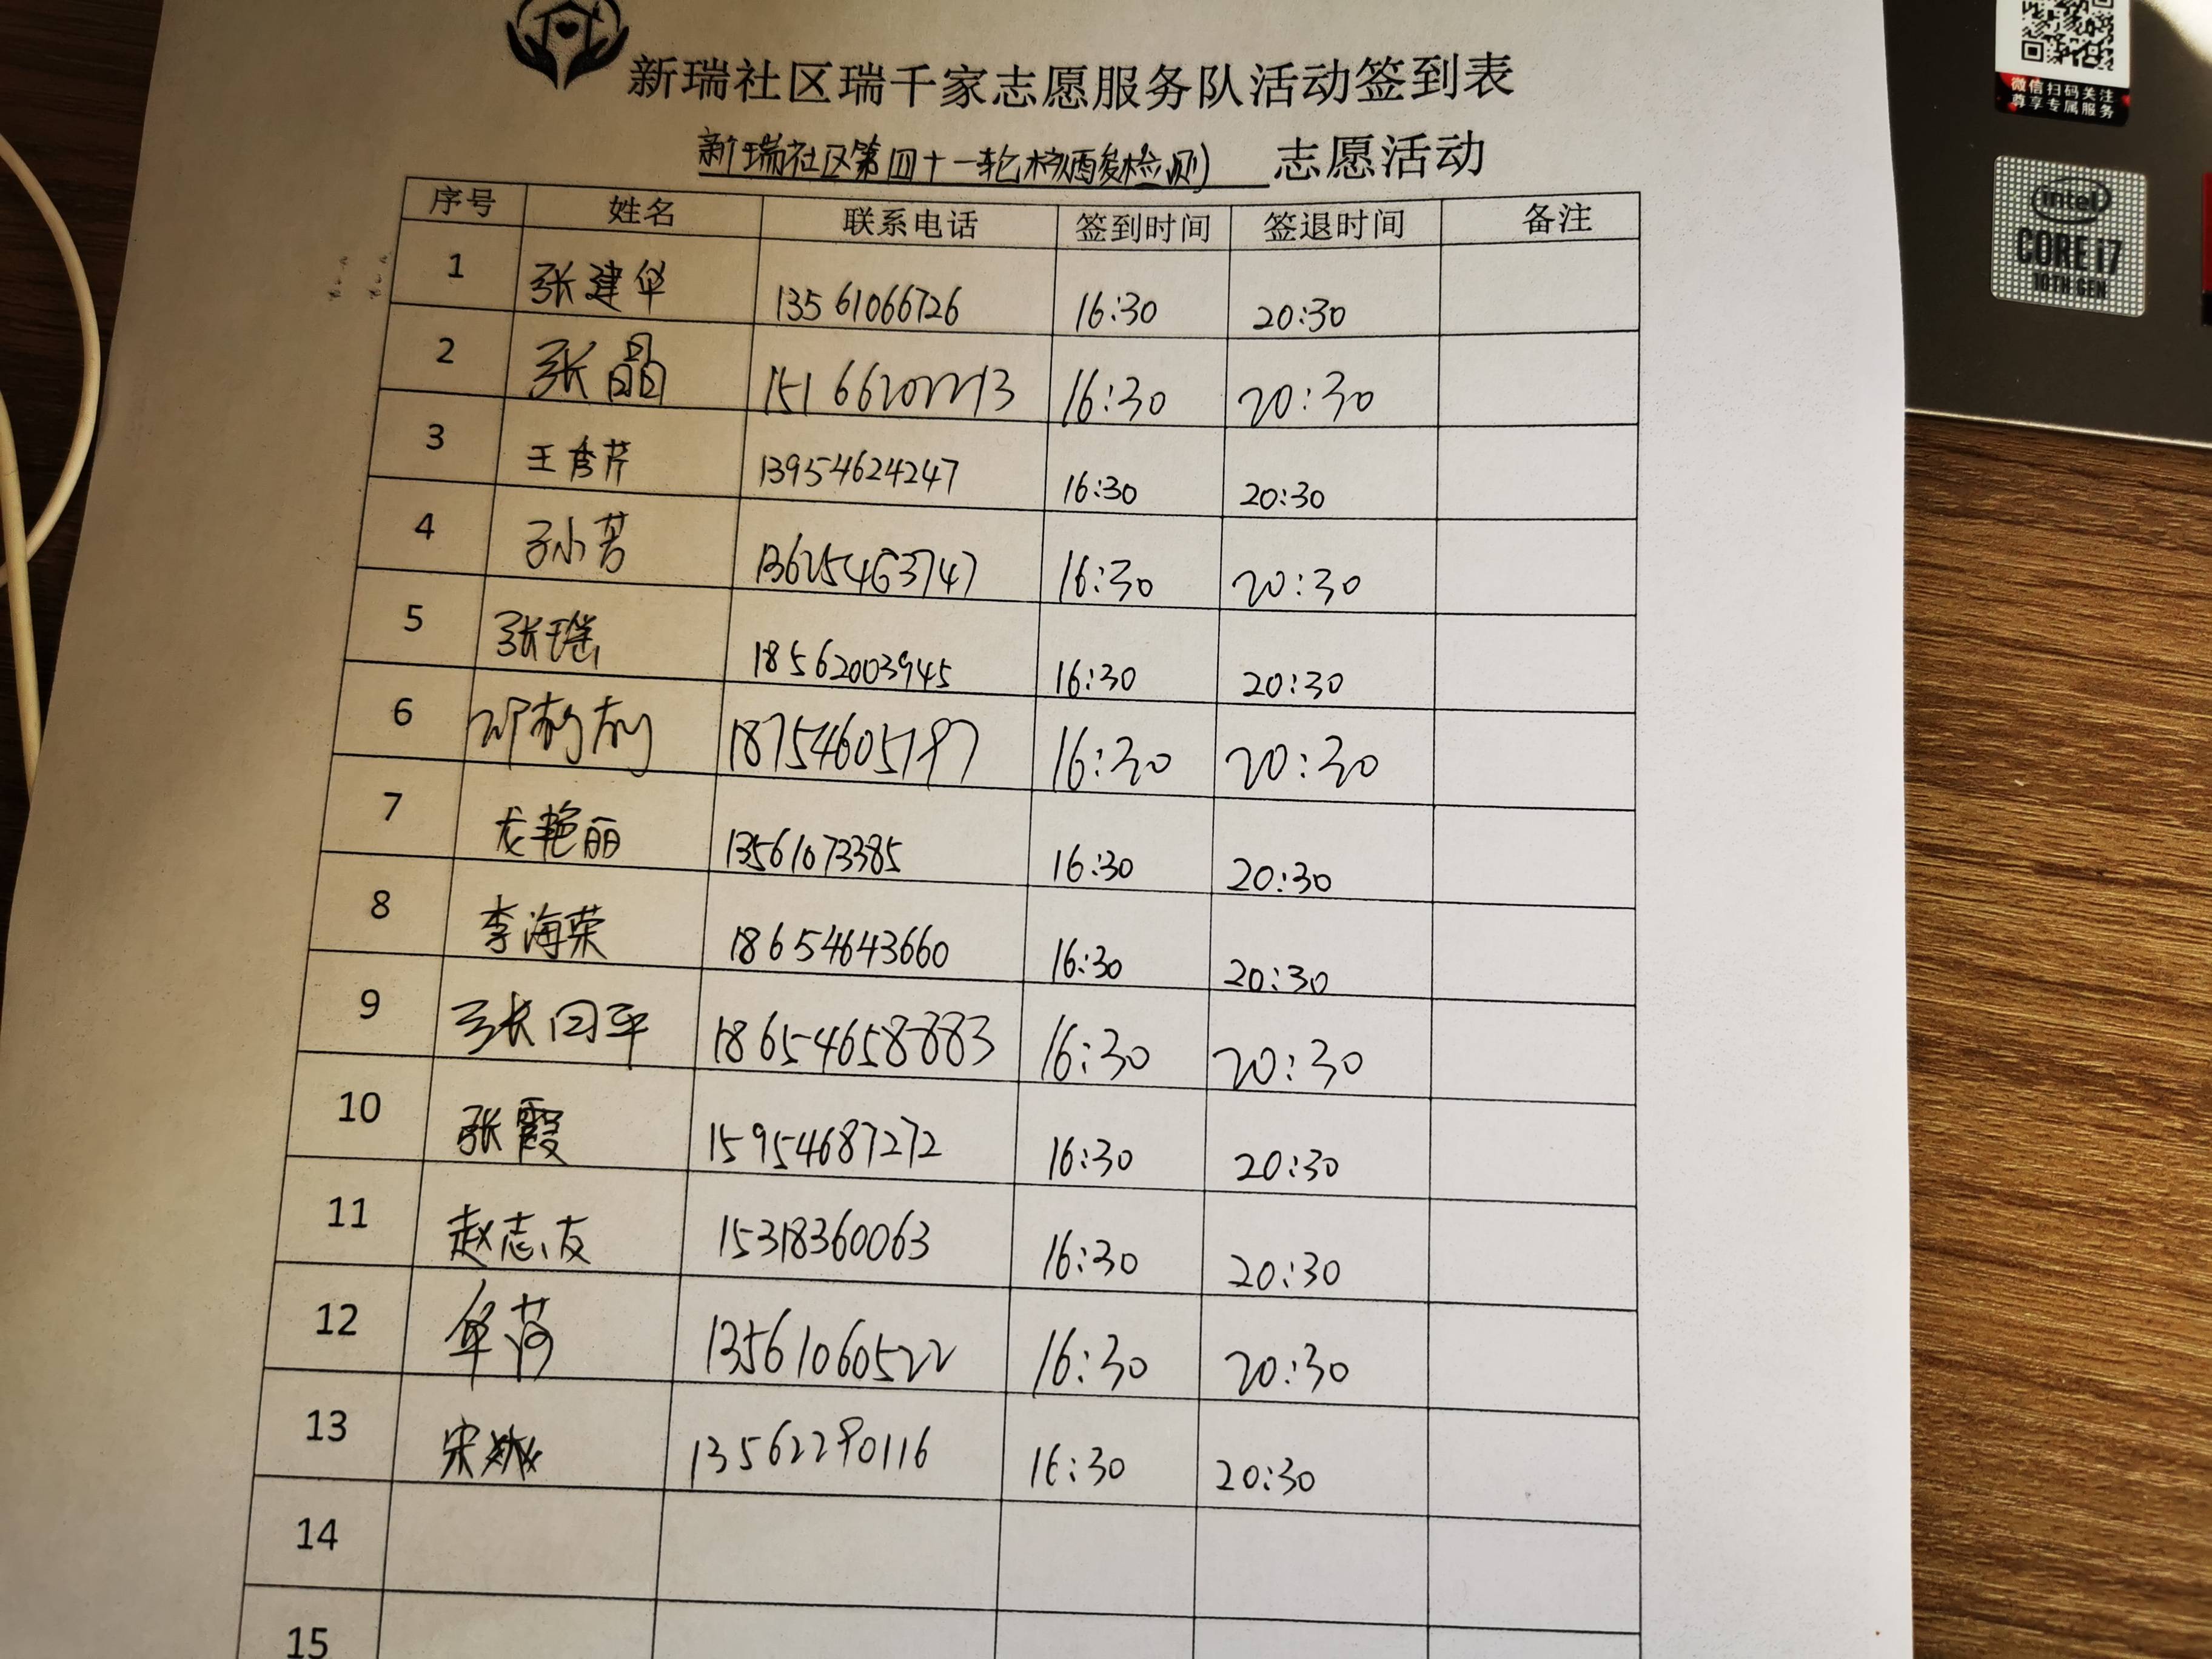 新瑞社区瑞千家志愿服务队活动签到表
新瑞社区第四十一轮核酸检测 志愿活动
序号 姓名 联系电话 签到时间 签退时间 备注
1 张建华 13561066726 16:30 20:30
2 张晶 15166202213 16:30 20:30
3 王秀芹 13954624247 16:30 20:30
4 孙小茗 13625463747 16:30 20:30
5 张瑶 18562003945 16:30 20:30
6 18754605797 16:30 20:30
7 龙艳丽 13561073385 16:30 20:30
8 李海荣 18654643660 16:30 20:30
9 张回平 18654658883 16:30 20:30
10 张霞 15954687272 16:30 20:30
11 赵志友 15318360063 16:30 20:30
12 13561060522 16:30 20:30
13 宋 13562290116 16:30 20:30
14
15
微信扫码关注
尊享专属服务
intel
CORE i7
10TH GEN